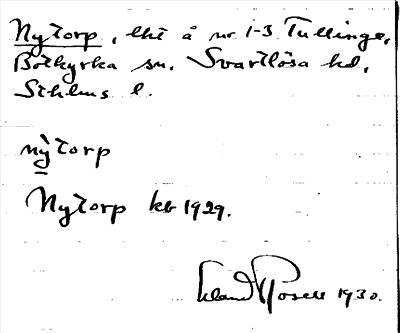 Nytorp, lht å nr 1-3 Tullinge,
Botkyrka sn. Svartlösa hd,
Sthlms l.
nỳtorp
Nytorp kb 1929.
1930.